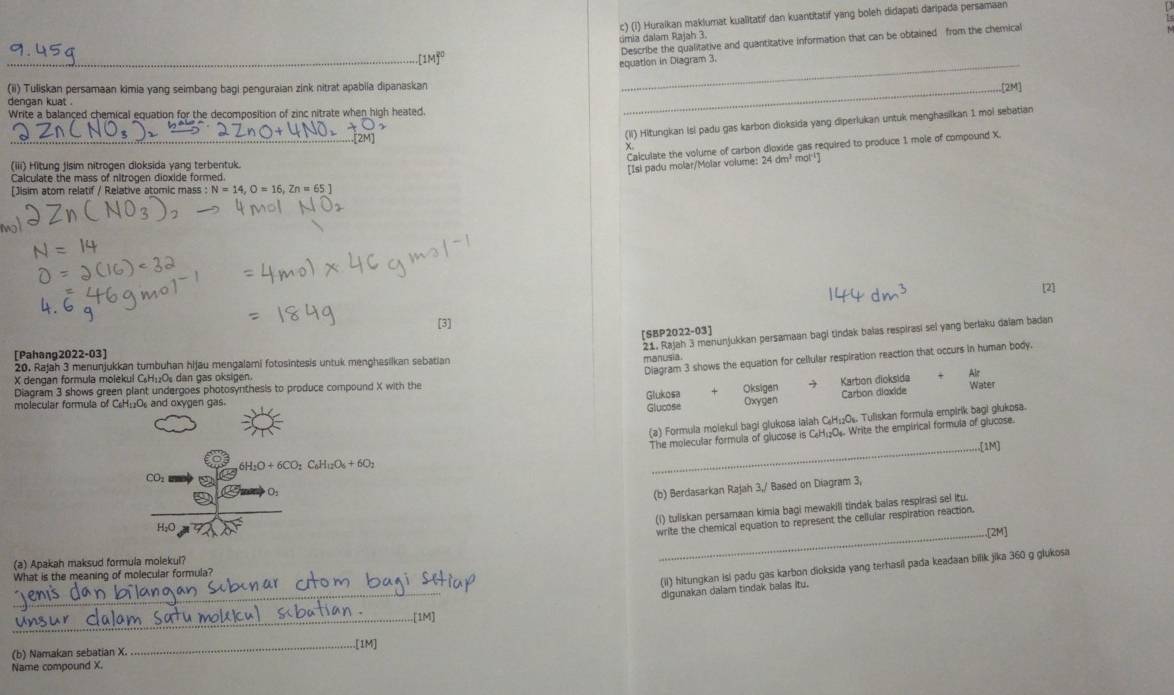 9.45g
[1M]
(ii) Tuliskan persamaan kimia yang seimbang bagi penguraian zink nitrat apabila dipanaskan
dengan kuat .
Write a balanced chemical equation for the decomposition of zinc nitrate when high heated.
2 Zn(NO₃)₂ → 2ZnO + 4NO₂ + O₂
[2M]
(iii) Hitung jisim nitrogen dioksida yang terbentuk.
Calculate the mass of nitrogen dioxide formed.
[Jisim atom relatif / Relative atomic mass : N = 14, O = 16, Zn = 65 ]
mol 2Zn(NO₃)₂ → 4 mol NO₂
N = 14
O = 2(16) = 32
= 46 g mol⁻¹
= 4 mol × 46 g mol⁻¹
4.6 g
= 184g
[3]
[Pahang2022-03]
20. Rajah 3 menunjukkan tumbuhan hijau mengalami fotosintesis untuk menghasilkan sebatian
X dengan formula molekul C₆H₁₂O₆ dan gas oksigen.
Diagram 3 shows green plant undergoes photosynthesis to produce compound X with the
molecular formula of C₆H₁₂O₆ and oxygen gas.
6H₂O + 6CO₂ C₆H₁₂O₆ + 6O₂
CO₂
O₂
H₂O
(a) Apakah maksud formula molekul?
What is the meaning of molecular formula?
jenis dan bilangan sebenar atom bagi setiap
unsur dalam satu molekul sebatian.
[1M]
(b) Namakan sebatian X.
[1M]
Name compound X.
c) (i) Huraikan maklumat kualitatif dan kuantitatif yang boleh didapati daripada persamaan
kimia dalam Rajah 3.
Describe the qualitative and quantitative information that can be obtained from the chemical
equation in Diagram 3.
[2M]
(ii) Hitungkan isi padu gas karbon dioksida yang diperlukan untuk menghasilkan 1 mol sebatian
X.
Calculate the volume of carbon dioxide gas required to produce 1 mole of compound X.
[Isi padu molar/Molar volume: 24 dm³ mol⁻¹]
144 dm³
[2]
[SBP2022-03]
21. Rajah 3 menunjukkan persamaan bagi tindak balas respirasi sel yang berlaku dalam badan
manusia.
Diagram 3 shows the equation for cellular respiration reaction that occurs in human body.
Glukosa + Oksigen → Karbon dioksida + Air
Glucose Oxygen Carbon dioxide Water
(a) Formula molekul bagi glukosa ialah C₆H₁₂O₆. Tuliskan formula empirik bagi glukosa.
The molecular formula of glucose is C₆H₁₂O₆. Write the empirical formula of glucose.
[1M]
(b) Berdasarkan Rajah 3,/ Based on Diagram 3,
(i) tuliskan persamaan kimia bagi mewakili tindak balas respirasi sel itu.
write the chemical equation to represent the cellular respiration reaction.
[2M]
(ii) hitungkan isi padu gas karbon dioksida yang terhasil pada keadaan bilik jika 360 g glukosa
digunakan dalam tindak balas itu.